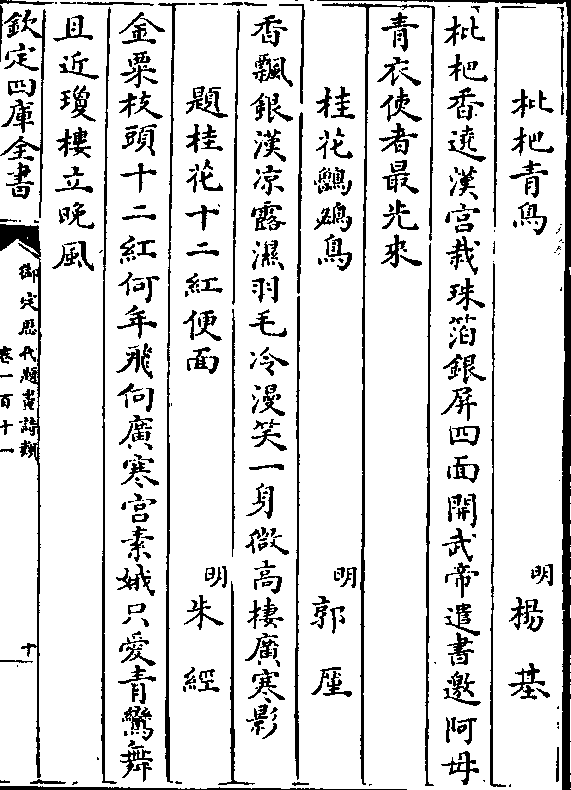 枇杷青鳥　明　楊基
枇杷香遶漢宮栽珠箔銀屏四面開武帝遣書邀阿母
青衣使者最先來
桂花鸜鵒鳥　明　郭厘
香飄銀漢凉露濕羽毛冷漫笑一身微高棲廣寒影
題桂花十二紅便面　明　朱經
金粟枝頭十二紅何年飛向廣寒宮素娥只愛青鸞舞
且近瓊樓立晚風
欽定四庫全書
御定歷代題畫詩類
卷一百十一
十